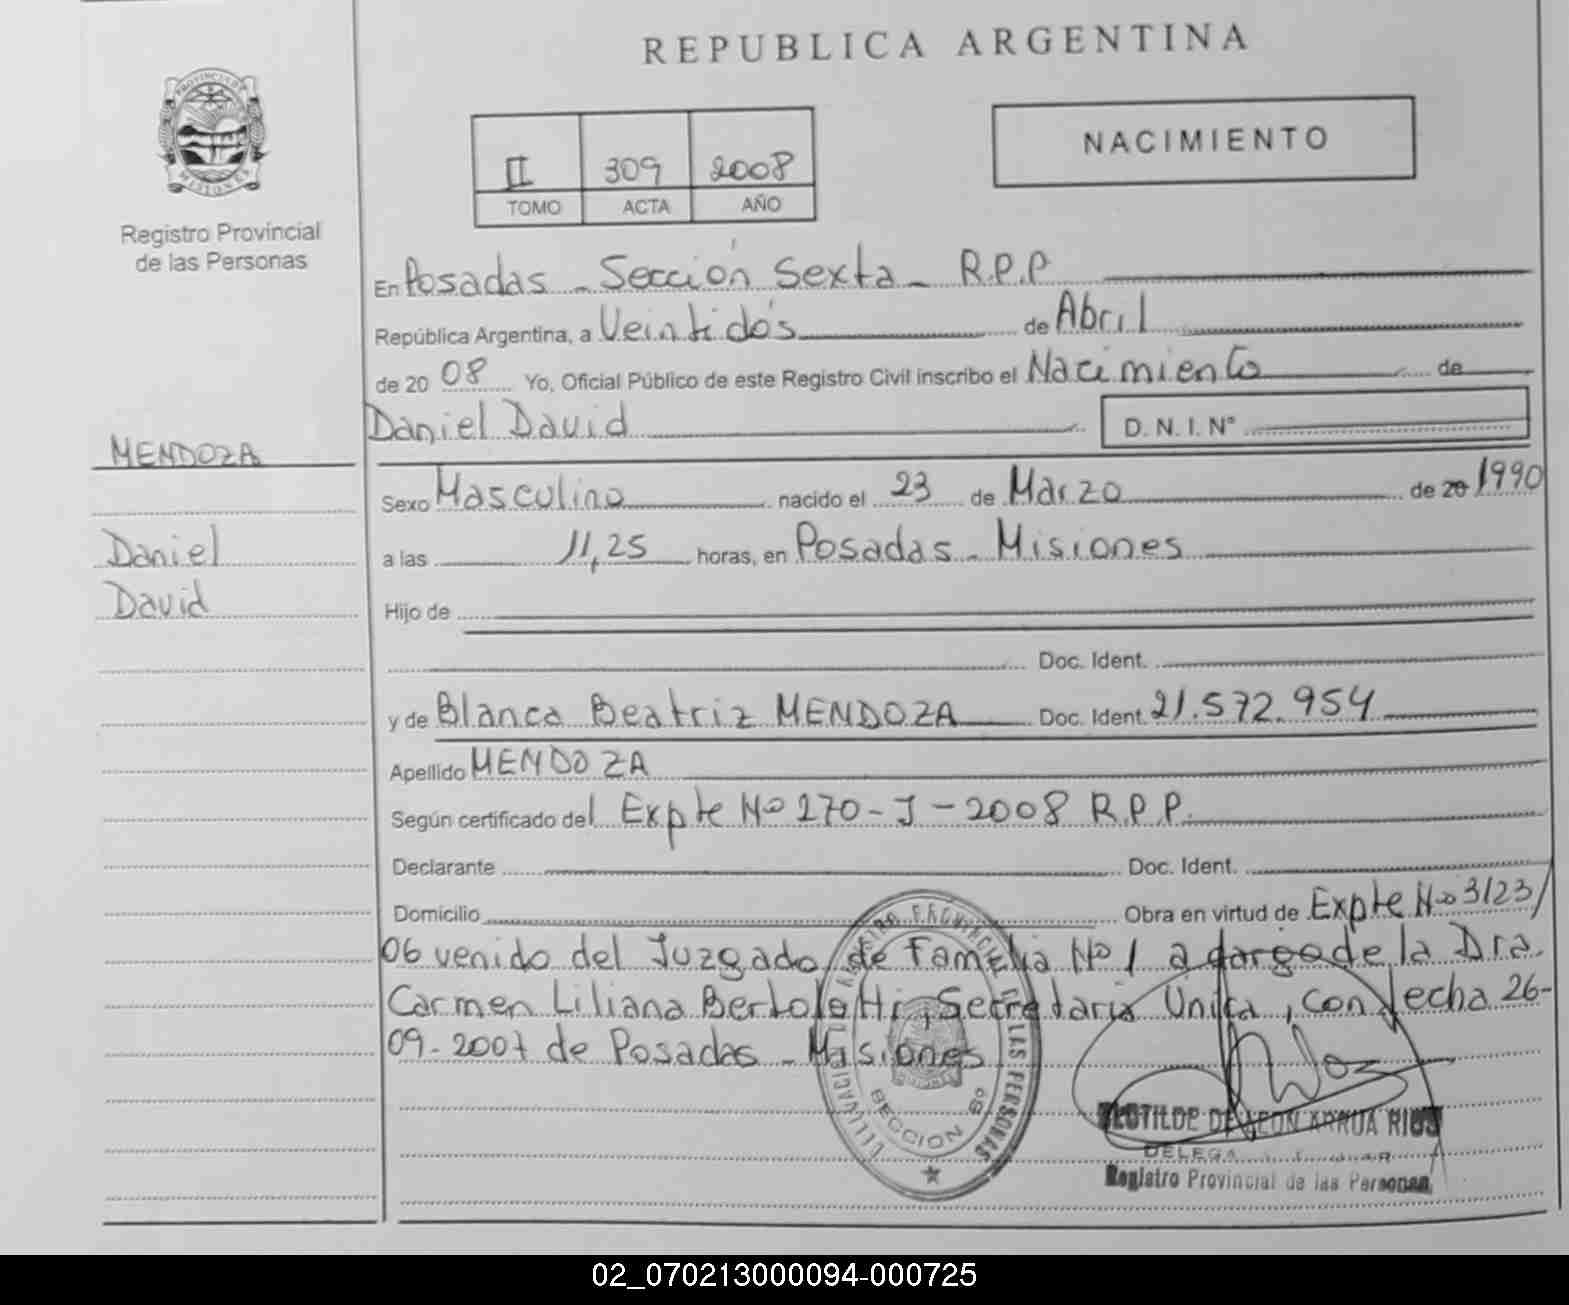 REPUBLICA ARGENTINA
PROVINCIA DE
MISIONES
Registro Provincial
de las Personas
II 309 2008
TOMO ACTA AÑO
NACIMIENTO
En Posadas - Sección Sexta - R.P.P
República Argentina, a Veintidós de Abril
de 20 08 Yo, Oficial Público de este Registro Civil inscribo el Nacimiento de
Daniel David D.N.I. Nº
MENDOZA
Sexo Masculino nacido el 23 de Marzo de 20 1990
Daniel
a las 11,25 horas, en Posadas - Misiones
David
Hijo de
Doc. Ident.
y de Blanca Beatriz MENDOZA Doc. Ident. 21.572.954
Apellido MENDOZA
Según certificado del Expte Nº 270-J-2008 R.P.P.
Declarante Doc. Ident.
Domicilio Obra en virtud de Expte Nº 3123/
06 venido del Juzgado de Familia Nº 1 a cargo de la Dra.
Carmen Liliana Bertoletti, Secretaria Unica, con fecha 26-
09-2007 de Posadas - Misiones
REGISTRO PROVINCIAL DE LAS PERSONAS
SECCION 6º
CLOTILDE DE LEON ARRUA RIOS
Registro Provincial de las Personas
02_070213000094-000725